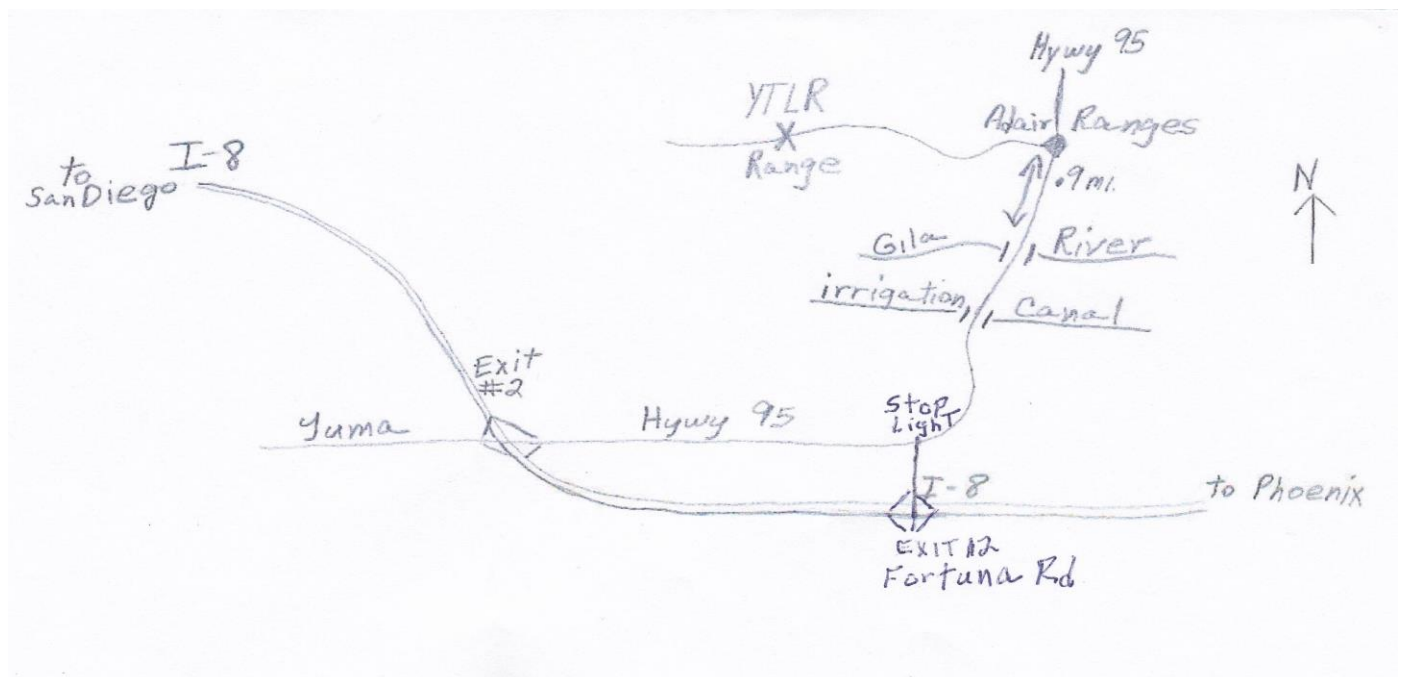 Hywy 95
YTLR
Range
Adair Ranges
I-8
to
San Diego
.9 mi.
N
Gila River
irrigation Canal
Exit
#2
Yuma
Hywy 95
Stop
Light
I-8
to Phoenix
EXIT 12
Fortuna Rd